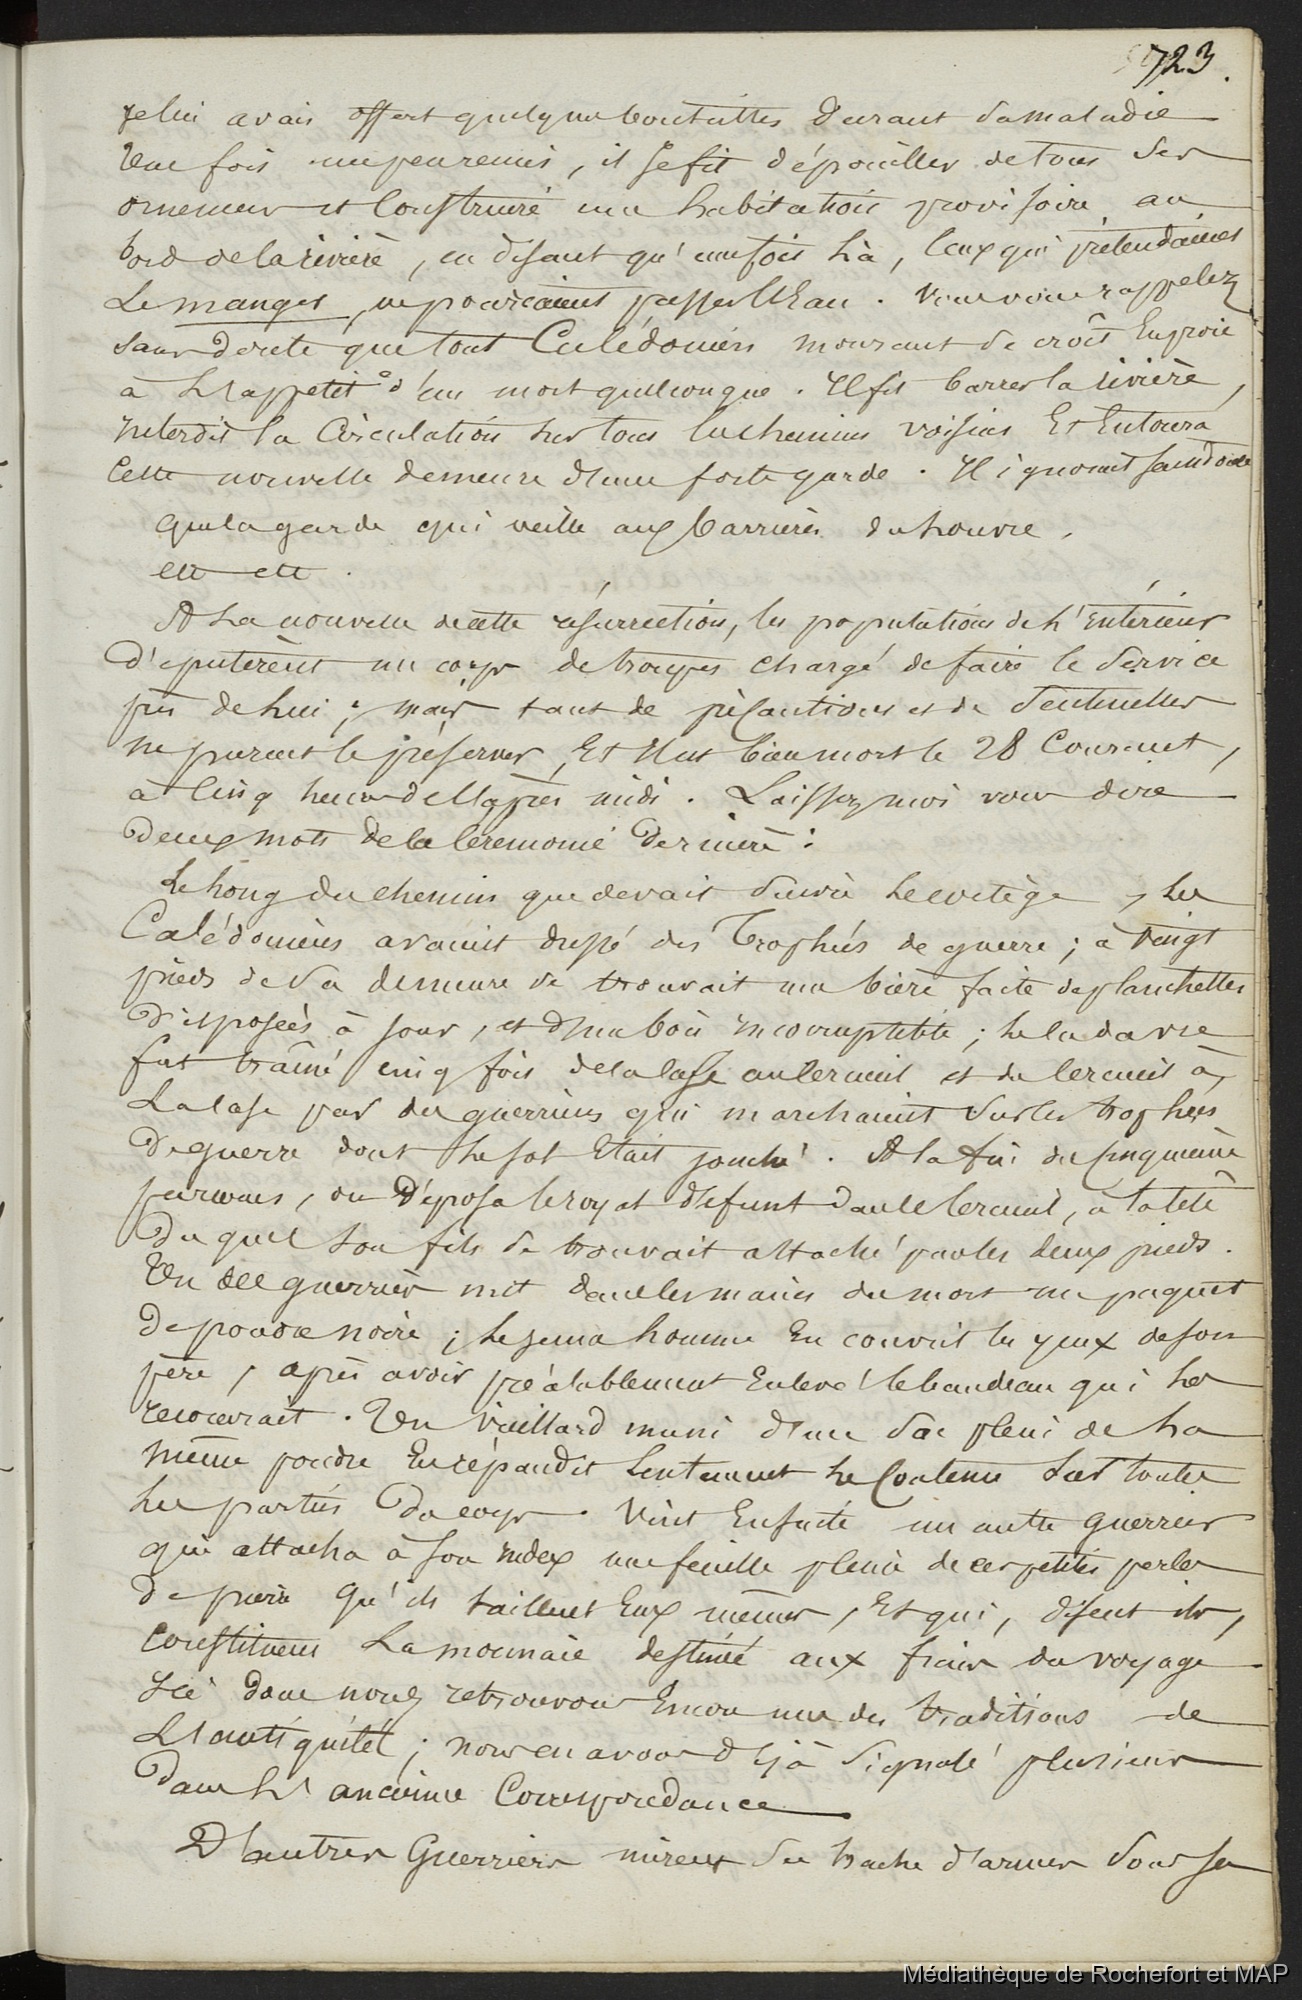 723.
je lui avais offert quelques bouteilles durant sa maladie
Une fois un peu remis, il se fit dépouiller de tous ses
ornemens et construire une habitation provisoire au
bord de la rivière, en disant qu'une fois là, ceux qui prétendaient
le manger, ne pourraient passer l'Eau. Vous vous rappelez
sans doute que tout Calédonien mourant se croit En proie
à l'appetit d'un mort quelconque. Il fit barrer la rivière,
interdit la Circulation sur tous les chemins voisins Et Entoura
Cette nouvelle demeure d'une forte garde. Il ignorait sans doute
que la garde qui veille aux barrières du Louvre,
ett ett.
A La nouvelle de cette résurrection, les populations de L'intérieur
députèrent un corps de troupes chargé de faire le Service
près de lui ; mais tant de précautions et de Sentinelles
ne purent le préserver, Et Il est bien mort le 28 Courant,
à Cinq heures de l'après midi. Laissez moi vous dire
Deux mots de la Ceremonie Dernière :
Le long du chemin que devait Suivre le cortège, les
Calédoniens avaient dressé des Trophées de guerre ; à vingt
pieds de Sa demeure se trouvait une bière faite de planchettes
Disposées à jour, et d'un bois incorruptible ; le cadavre
fut traîné cinq fois de la Case au Cercueil et du Cercueil à
La case par des guerriers qui marchaient Sur les trophées
De guerre dont le sol Etait jonché. A la fin du Cinquième
parcours, on Déposa le royal défunt dans le Cercueil, à la tête
Du quel Son fils Se trouvait attaché par les deux pieds.
Un guerrier mit dans les mains du mort un paquet
De poudre noire ; le jeune homme En couvrit les yeux de son
père, après avoir préalablement Enlevé le bandeau qui les
recouvrait. Un Vieillard muni d'un Sac plein de La
même poudre En répandit lentement le Contenu Sur toutes
les parties Du corps. Vint Ensuite un autre guerrier
qui attacha à Son index une feuille pleine de ces petites perles
De pierre qu'ils taillent Eux mêmes, Et qui, disent ils,
Constituent La monnaie destinée aux frais du voyage.
Ici donc nous retrouvons Encore une des traditions de
L'antiquité ; nous en avons déjà Signalé plusieurs
Dans L'ancienne Correspondance
D'autres Guerriers mirent Sa hache d'armes Sous sa
Médiathèque de Rochefort et MAP